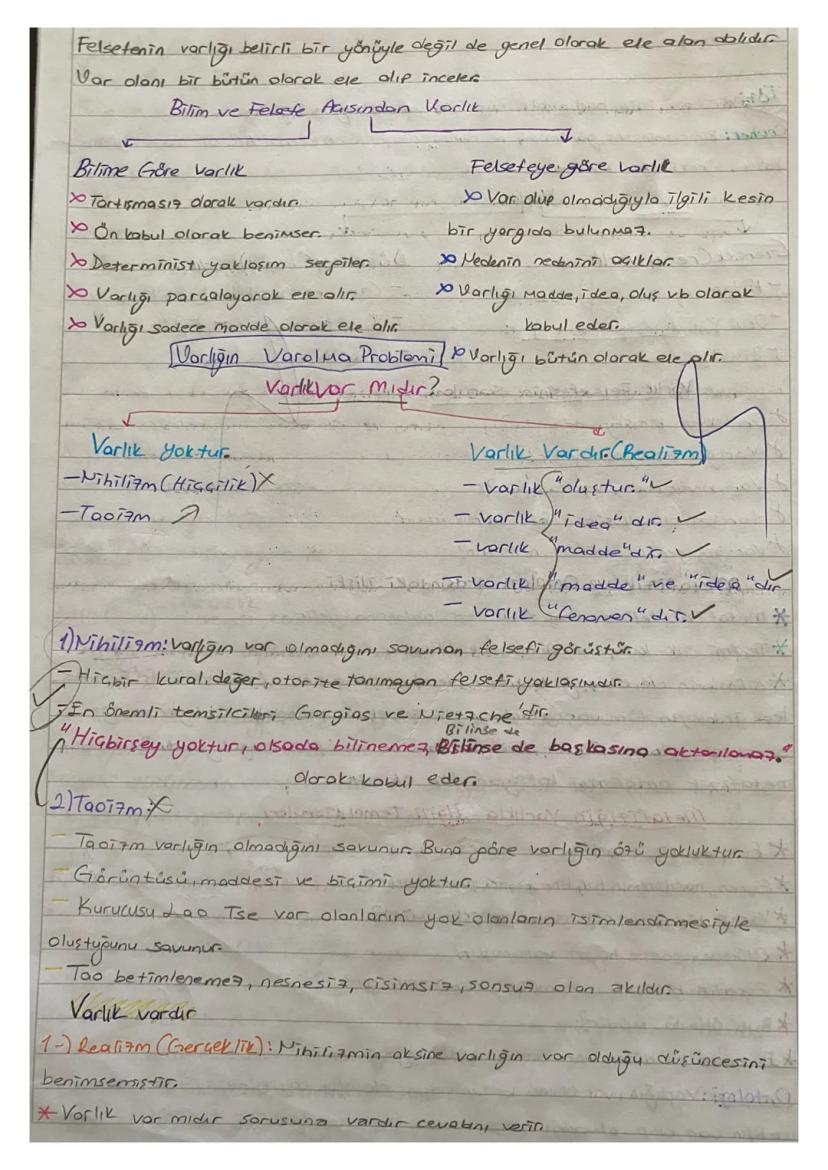 Felsefenin varlığı belirli bir yönüyle değil de genel olarak ele alan dalıdır.
Var olanı bir bütün olarak ele alıp inceler.
Bilim ve Felsefe Açısından Varlık
Bilime Göre Varlık
× Tartışmasız olarak vardır.
× Ön kabul olarak benimser.
× Determinist yaklaşım serpiler.
× Varlığı parçalayarak ele alır.
× Varlığı sadece madde olarak ele alır.
Felsefeye göre varlık
× Var olup olmadığıyla ilgili kesin
bir yargıda bulunmaz.
× Nedenin nedenini açıklar.
× Varlığı madde, idea, oluş vb olarak
kabul eder.
× Varlığı bütün olarak ele alır.
Varlığın Varolma Problemi
Varlık var mıdır?
Varlık yoktur.
- Nihilizm (Hiççilik)
- Taoizm
Varlık Vardır. (Realizm)
- varlık "oluştur."
- varlık "idea" dır.
- varlık "madde" dir.
- varlık "madde" ve "idea" dır
- varlık "fenomen" dir.
1) Nihilizm: varlığın var olmadığını savunan felsefi görüştür.
- Hiçbir kural, değer, otorite tanımayan felsefi yaklaşımdır.
- En önemli temsilcileri Gorgias ve Nietzche'dir.
"Hiçbirşey yoktur, olsada bilinemez, Bilinse de başkasına aktarılamaz."
Bilinse de
olarak kabul eder.
2) Taoizm:
- Taoizm varlığın olmadığını savunur. Buna göre varlığın özü yokluktur.
- Görüntüsü, maddesi ve biçimi yoktur.
- Kurucusu Lao Tse var olanların yok olanların isimlendirmesiyle
oluştuğunu savunur.
- Tao betimlenemez, nesnesiz, cisimsiz, sonsuz olan akıldır.
Varlık vardır
1-) Realizm (Gerçeklik): Nihilizmin aksine varlığın var olduğu düşüncesini
benimsemiştir.
* Varlık var mıdır sorusuna vardır cevabını verir.